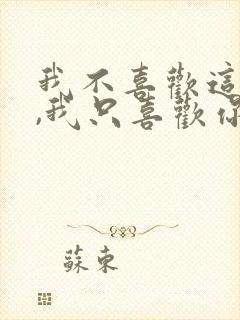 我不喜歡這
,我只喜歡你
蘇東